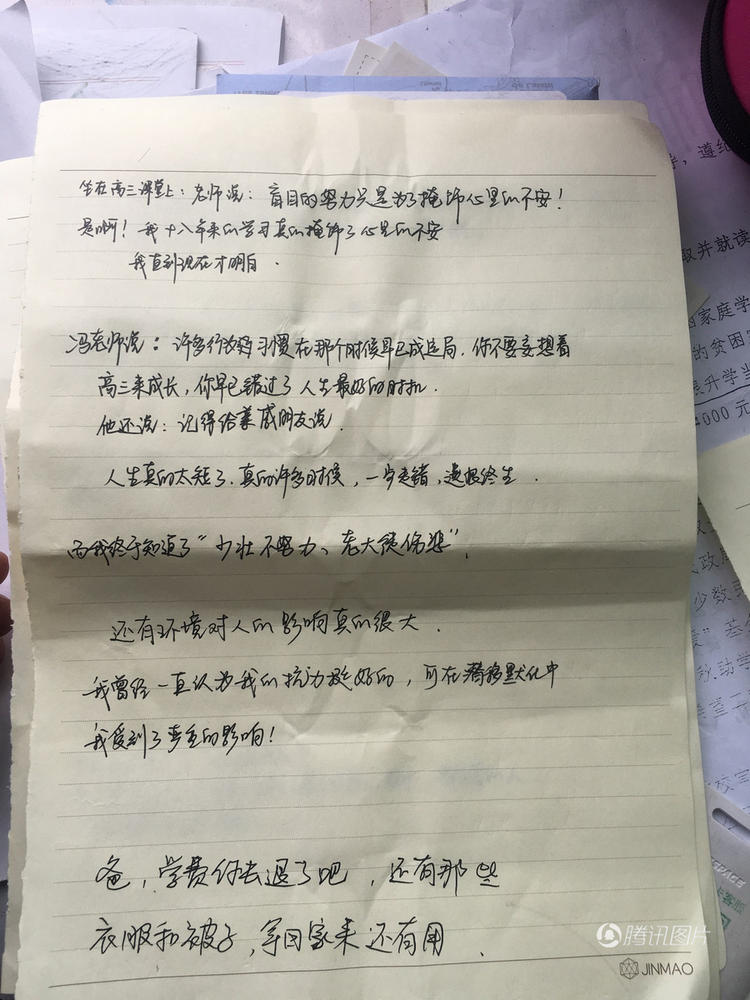 坐在高三课堂上：老师说：盲目的努力只是为了掩饰心里的不安！
是啊！我十八年来的学习真的掩饰了心里的不安
我直到现在才明白．
冯老师说：许多行为习惯在那个时候早已成定局．你不要妄想着
高三来成长，你早已错过了人生最好的时机．
他还说：记得给亲戚朋友说．
人生真的太短了．真的许多时候，一步走错，遗恨终生．
而我终于知道了“少壮不努力、老大徒伤悲”．
还有环境对人的影响真的很大．
我曾经一直认为我的抗力挺好的，可在潜移默化中
我受到了严重的影响！
爸，学费你去退了吧，还有那些
衣服和被子，拿回家来还有用．
，遵纪
取并就读
家庭学
的贫困
升学当
000 元
政府
少数
基
助学
腾讯图片
JINMAO